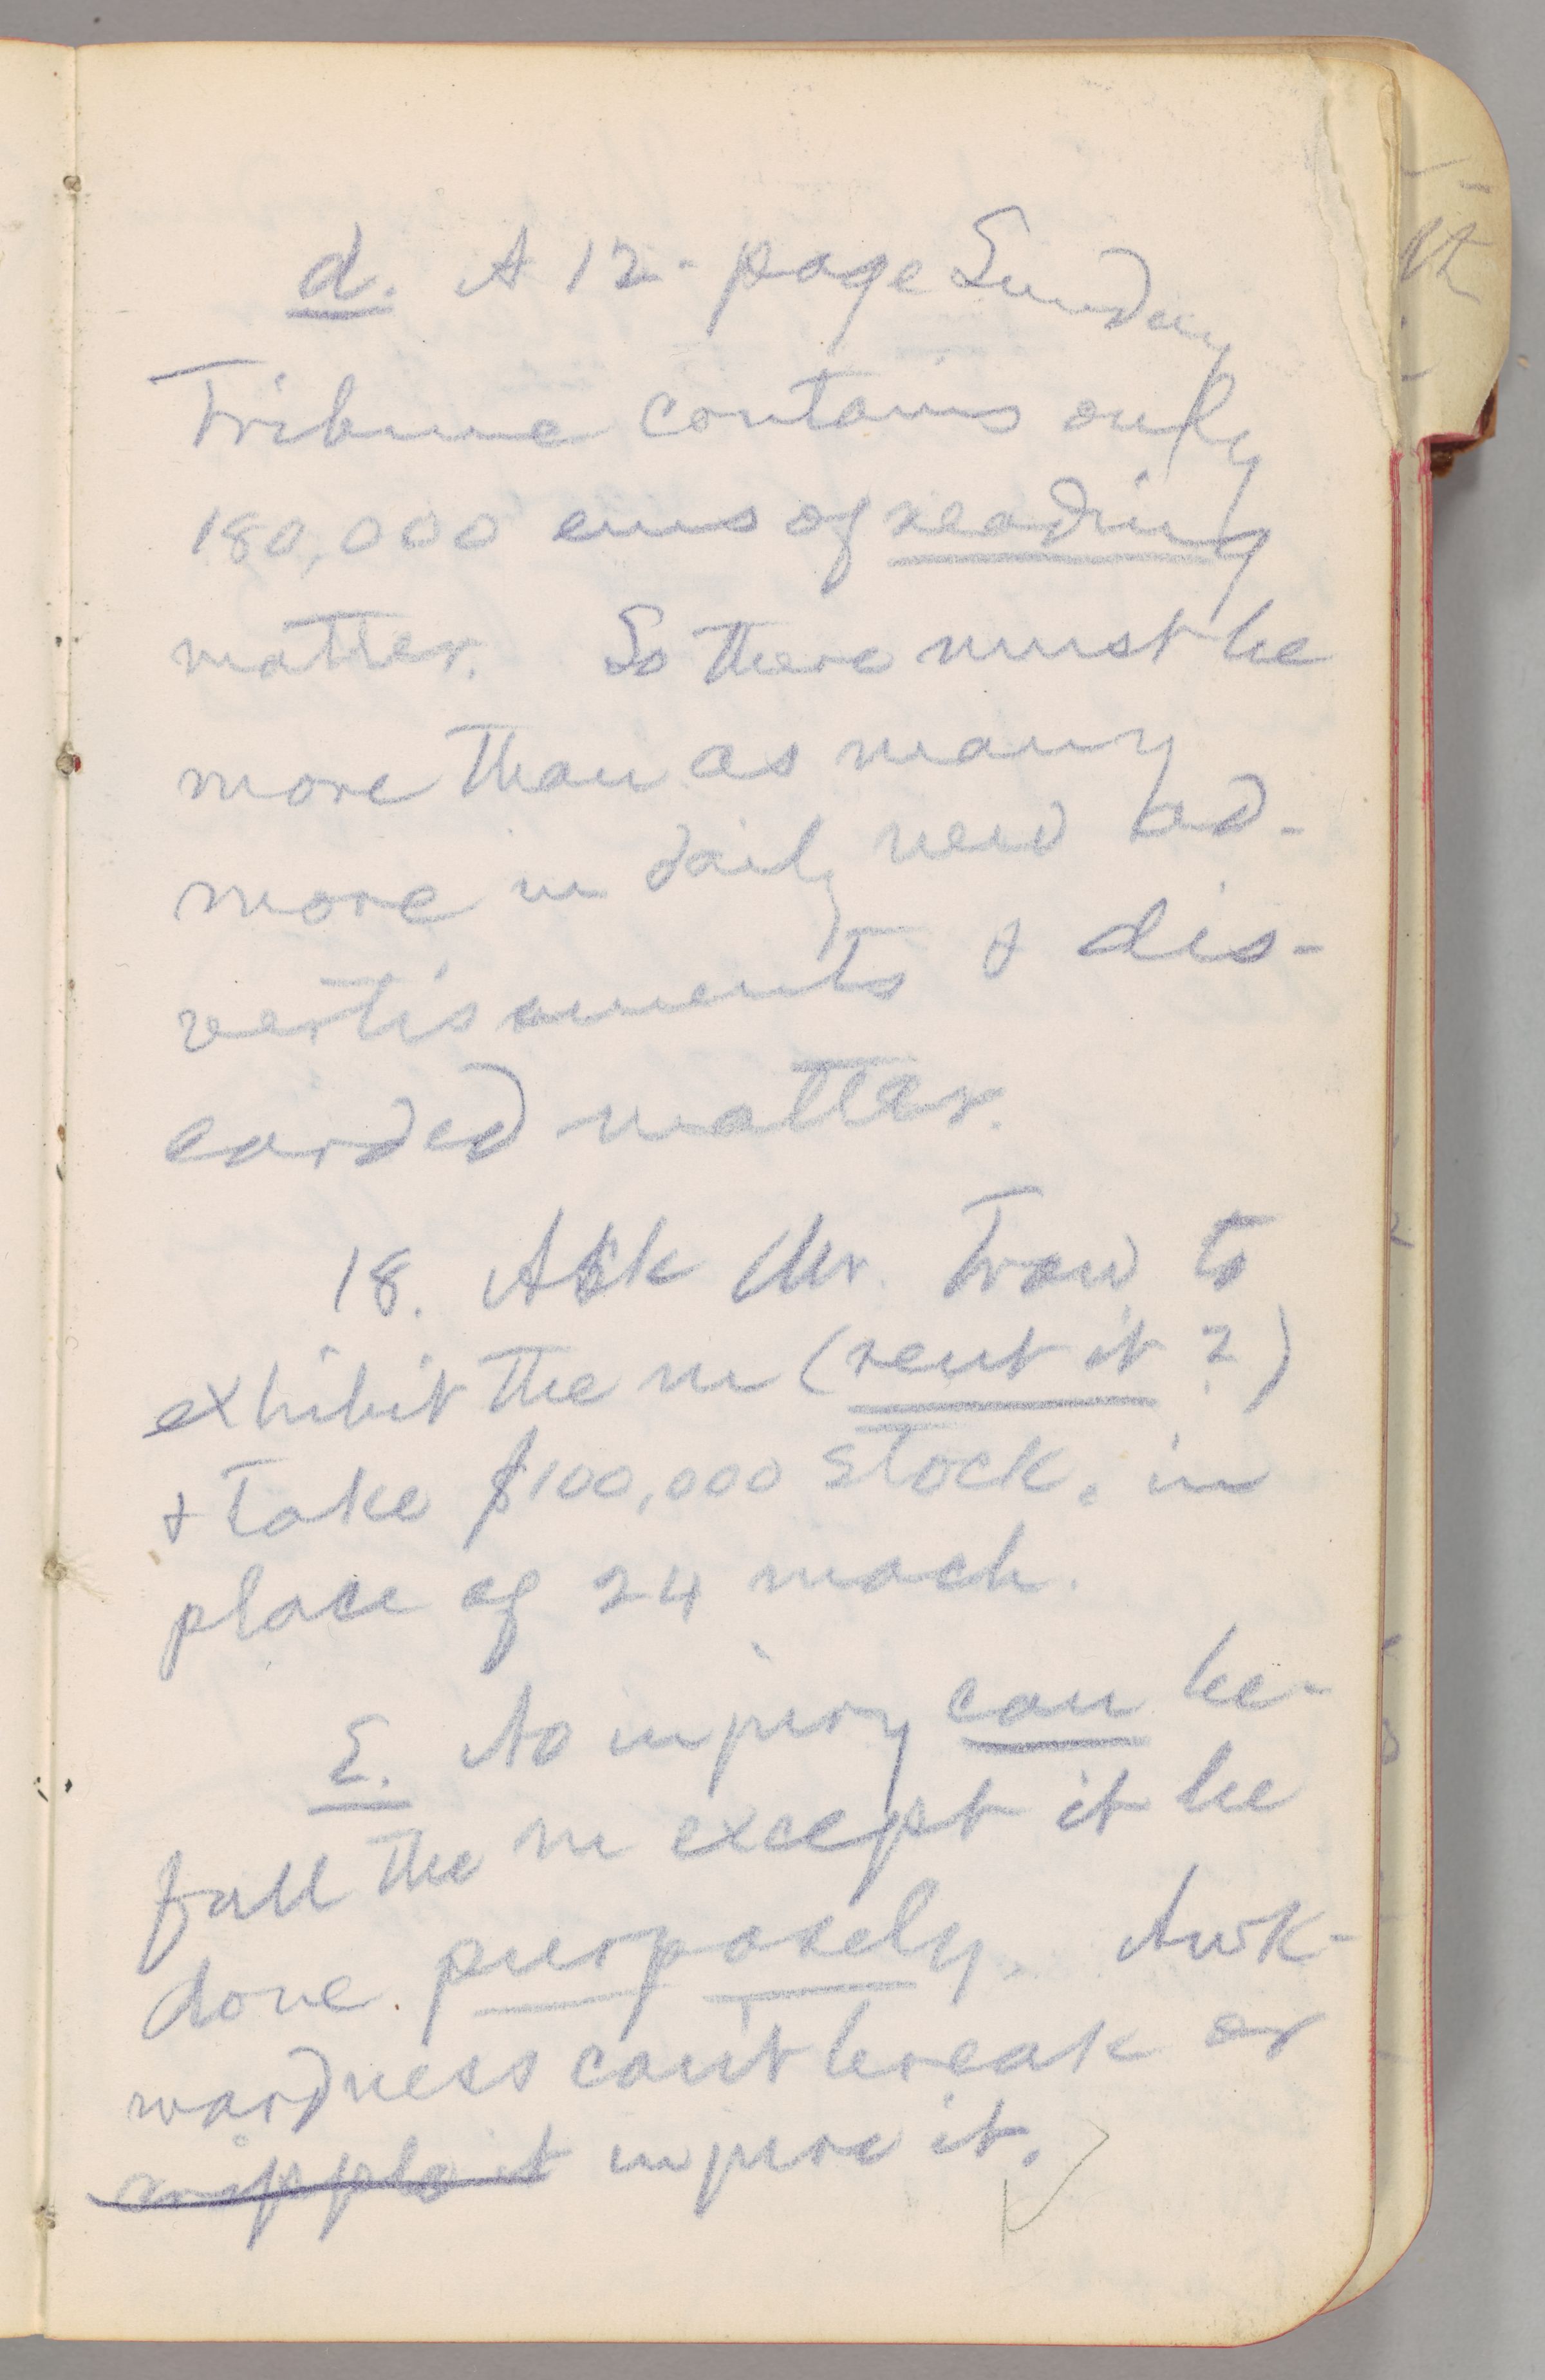 d. A 12-page Sunday
Tribune contains only
180,000 ems of reading
matter. So there must be
more than as many
more in daily new ad-
vertisements & dis-
carded matter.
18. Ask Mr. Trow to
exhibit the m (rent it?)
& take $100,000 stock, in
place of 24 mach.
E. No injury can be-
fall the m except it be
done purposely. Awk-
wardness can't break or
cripple it injure it.